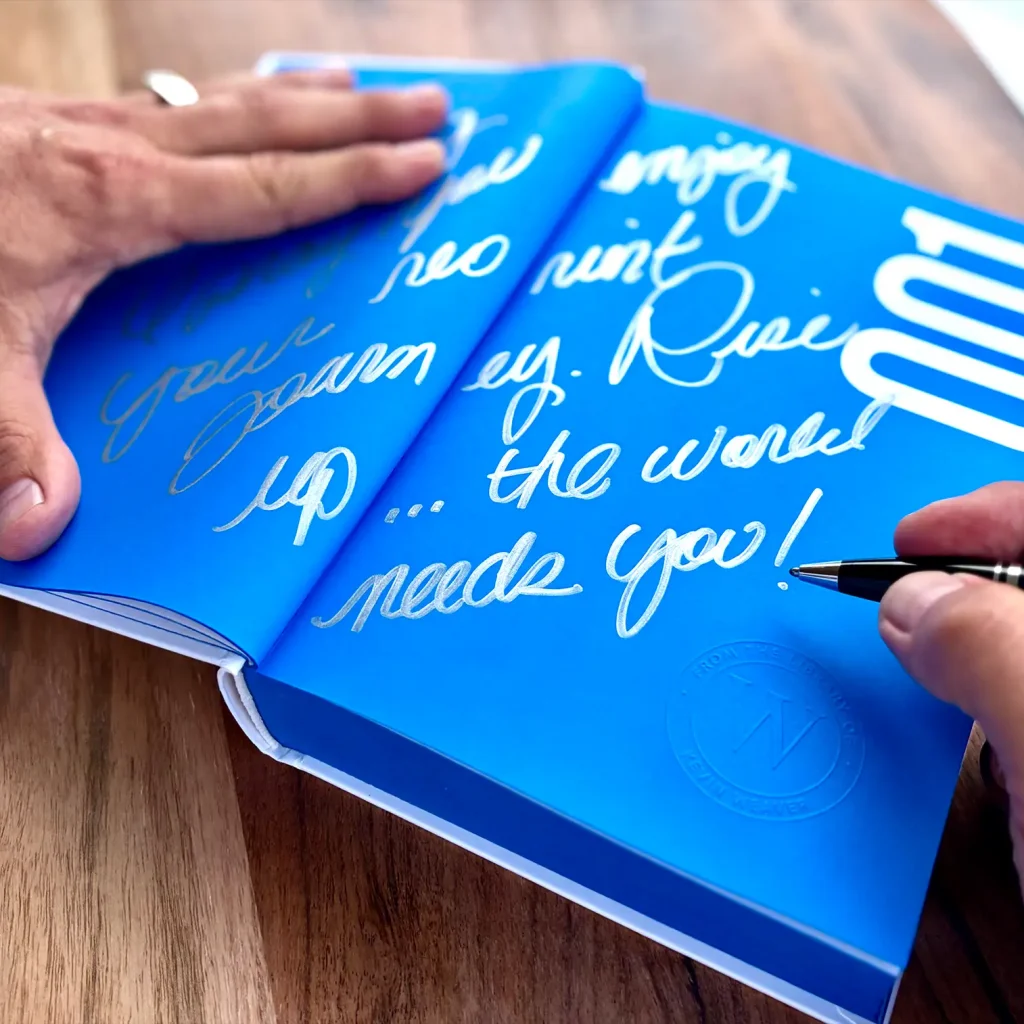 you enjoy
reo rient
your journ ey. Rise
up ... the world
needs you!
001
FROM THE LIBRARY OF
N
KEVIN WEAVER